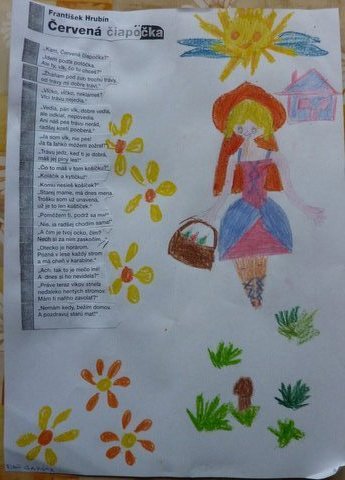 František Hrubín
Červená čiapočka
„Kam, Červená čiapočka?"
„Idem podľa potôčka.
Ale ty, vlk, čo tu chceš?"
„Zháňam pod zub trochu trávy,
od trávy mi dobre trávi."
„Vĺčko, vĺčko, neklameš?
Vlci trávu nejedia."
„Vedia, pán vlk, dobre vedia,
ale odkiaľ, nepovedia.
Ani náš pes trávu nerád,
radšej kosti pooberá."
„Ja som vlk, nie pes!
Ja ťa ľahko môžem zožrať!"
„Trávu jedz, keď ti je dobrá,
máš jej plný les!"
„Čo to máš v tom košíčku?"
„Koláčik a kytičku!"
„Komu nesieš košíček?"
„Starej mame, má dnes mena.
Trošku som už unavená,
už je to len kúštiček."
„Pomôžem ti, podrž sa ma!"
„Nie, ja radšej chodím sama!"
„A čím je tvoj očko, čím?
Nech si za ním zaskočím."
„Otecko je horárom.
Pozná v lese každý strom
a má cheň v karabíne."
„Ach, tak to je niečo iné!
A dnes si ho nevidela?"
„Práve teraz vlkov strieľa
neďaleko hentých stromov.
Mám ti naňho zavolať?"
„Nemám kedy, bežím domov.
A pozdravuj starú mať!"